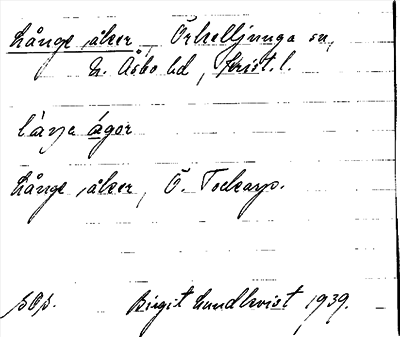 Långe åker, Örkelljunga sn,
N. Åsbo hd, Krist. l.
låŋa ågor
Långe åker, Ö. Tockarp.
sOp. Birgit Lundkvist 1939.